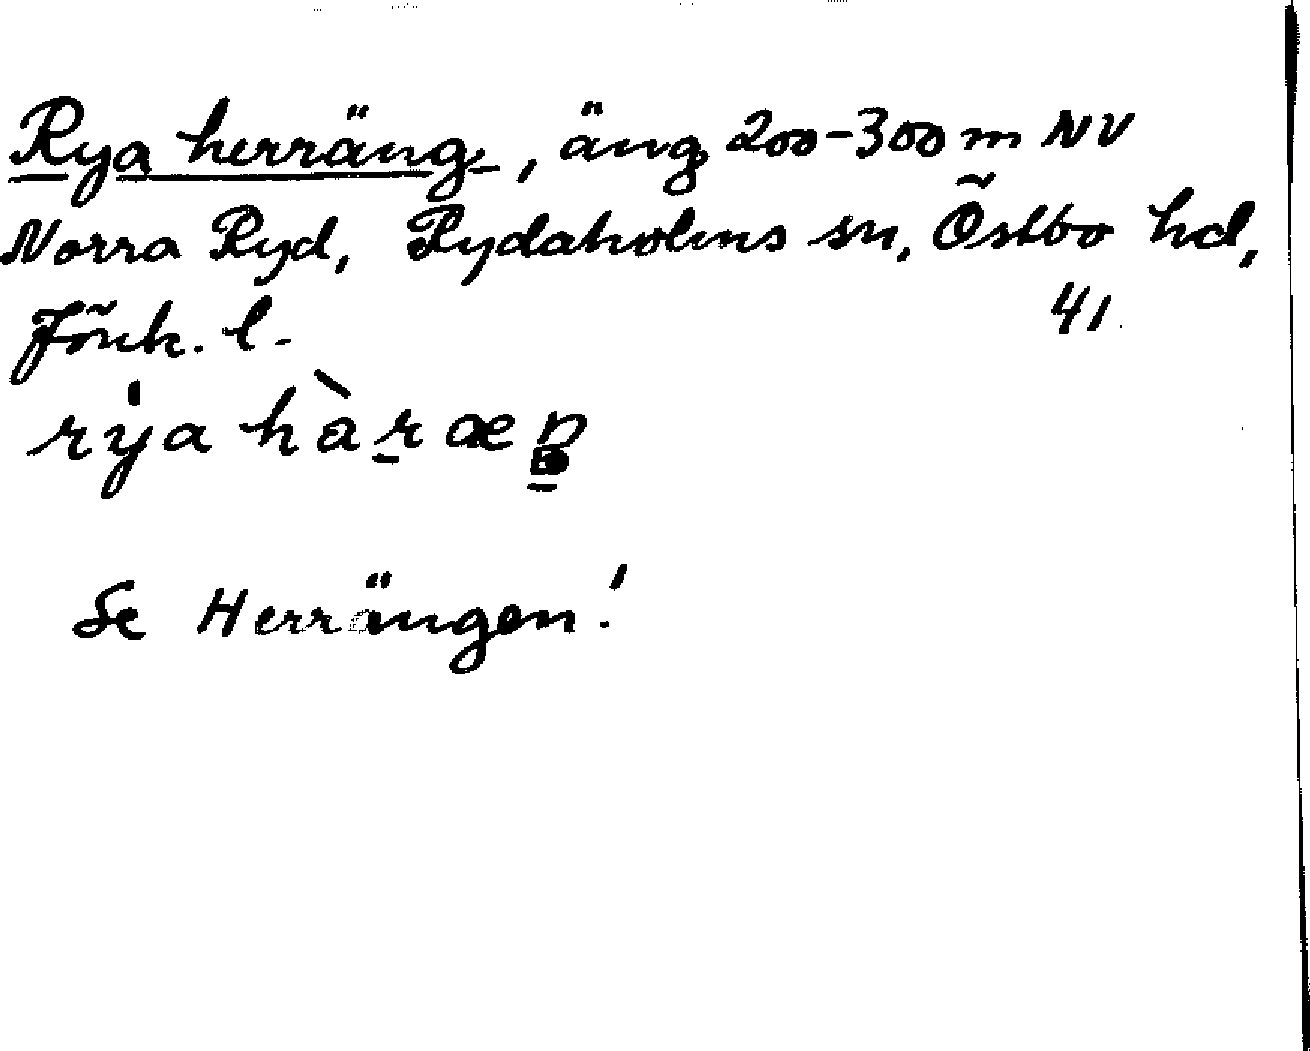 Rya herräng, äng 200-300 m NV
Norra Ryd, Rydaholms sn, Östbo hd,
Jönk. l.
41
rya hàr
Se Herrängen!